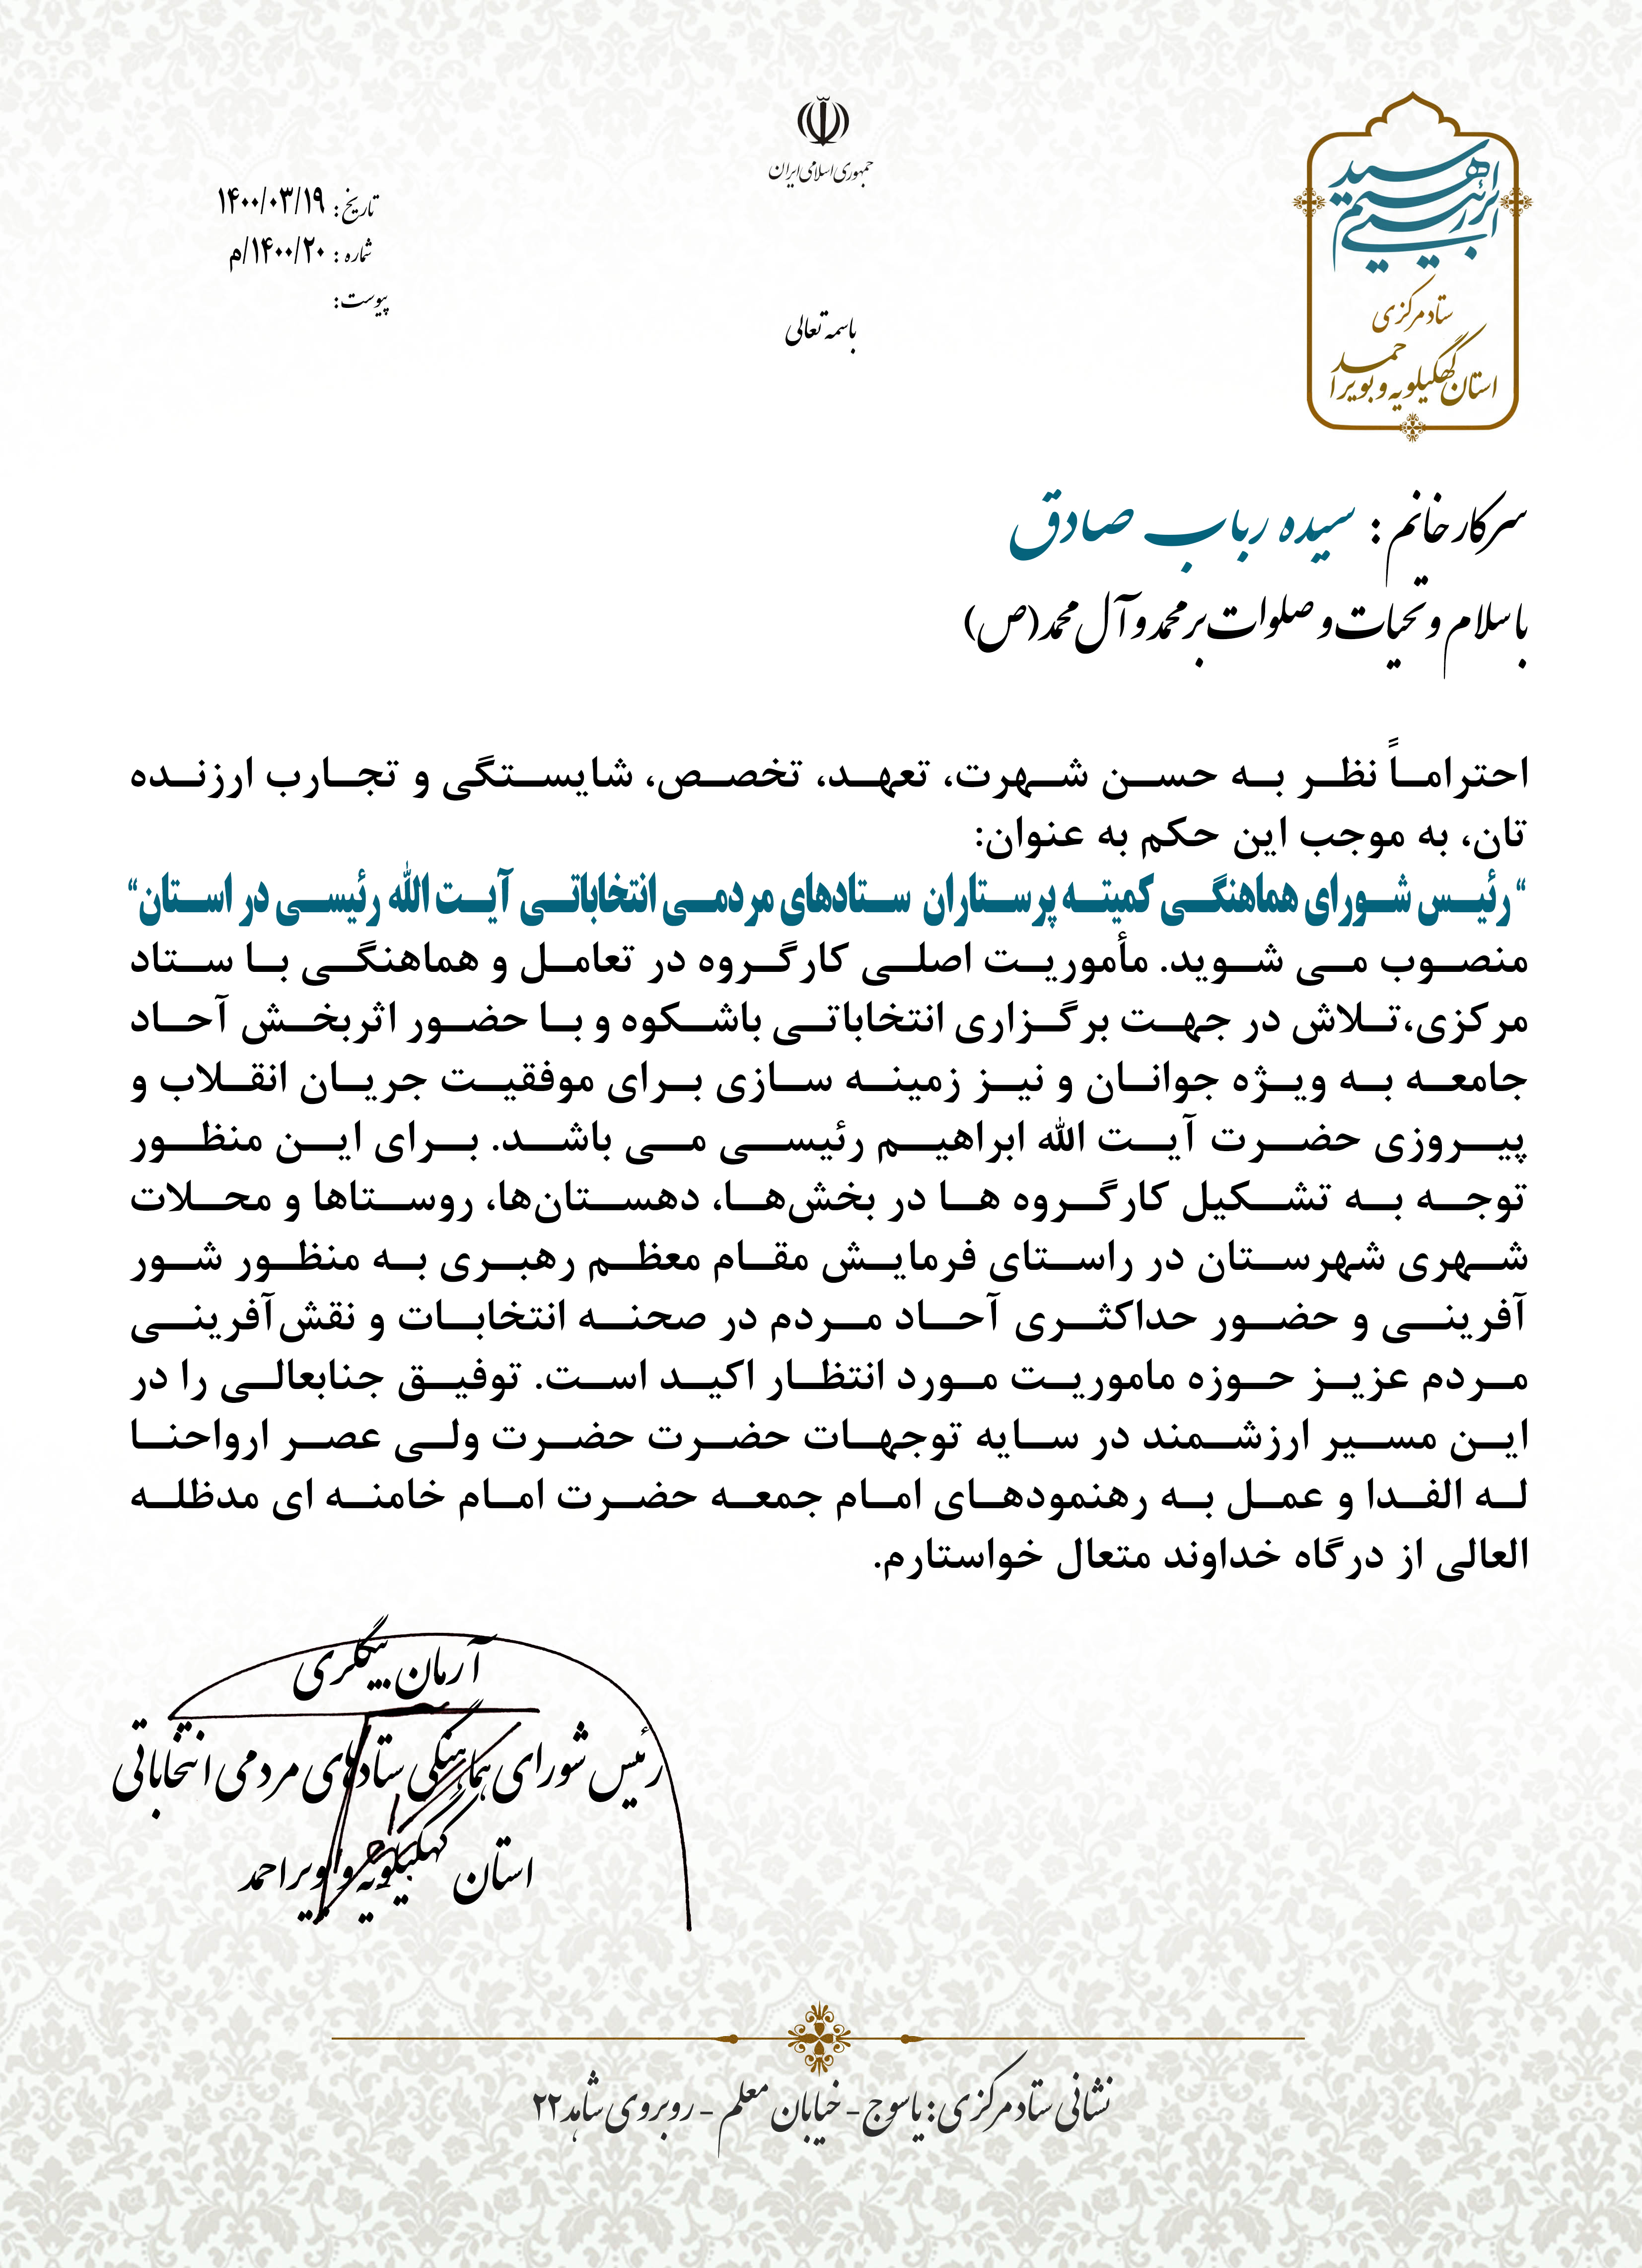 جمهوری اسلامی ایران
تاریخ: ۱۴۰۰/۰۳/۱۹
شماره: ۱۴۰۰/۲۰/م
پیوست:
باسمه تعالی
سید ابراهیم رئیسی
ستاد مرکزی
استان کهگیلویه و بویراحمد
سرکار خانم: سیده رباب صادق
با سلام و تحیات و صلوات بر محمد و آل محمد (ص)
احتراماً نظر به حسن شهرت، تعهد، تخصص، شایستگی و تجارب ارزنده
تان، به موجب این حکم به عنوان:
“ رئیس شورای هماهنگی کمیته پرستاران ستادهای مردمی انتخاباتی آیت الله رئیسی در استان“
منصوب می شوید. مأموریت اصلی کارگروه در تعامل و هماهنگی با ستاد
مرکزی،تلاش در جهت برگزاری انتخاباتی باشکوه و با حضور اثربخش آحاد
جامعه به ویژه جوانان و نیز زمینه سازی برای موفقیت جریان انقلاب و
پیروزی حضرت آیت الله ابراهیم رئیسی می باشد. برای این منظور
توجه به تشکیل کارگروه ها در بخش‌ها، دهستان‌ها، روستاها و محلات
شهری شهرستان در راستای فرمایش مقام معظم رهبری به منظور شور
آفرینی و حضور حداکثری آحاد مردم در صحنه انتخابات و نقش‌آفرینی
مردم عزیز حوزه ماموریت مورد انتظار اکید است. توفیق جنابعالی را در
این مسیر ارزشمند در سایه توجهات حضرت حضرت ولی عصر ارواحنا
له الفدا و عمل به رهنمودهای امام جمعه حضرت امام خامنه ای مدظله
العالی از درگاه خداوند متعال خواستارم.
آرمان بیگلری
رئیس شورای هماهنگی ستادهای مردمی انتخاباتی
استان کهگیلویه و بویراحمد
نشانی ستاد مرکزی: یاسوج - خیابان معلم - روبروی شاهد ۲۲